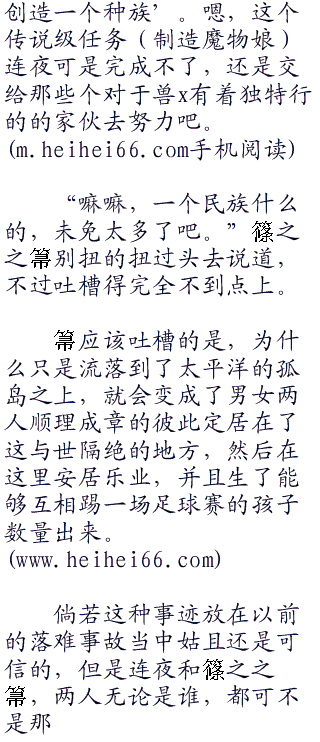 创造一个种族’。嗯，这个
传说级任务（制造魔物娘）
连夜可是完成不了，还是交
给那些个对于兽x有着独特行
的的家伙去努力吧。
(m.heihei66.com手机阅读)
“嘛嘛，一个民族什么
的，未免太多了吧。”篠之
之箒别扭的扭过头去说道，
不过吐槽得完全不到点上。
箒应该吐槽的是，为什
么只是流落到了太平洋的孤
岛之上，就会变成了男女两
人顺理成章的彼此定居在了
这与世隔绝的地方，然后在
这里安居乐业，并且生了能
够互相踢一场足球赛的孩子
数量出来。
(www.heihei66.com)
倘若这种事迹放在以前
的落难事故当中姑且还是可
信的，但是连夜和篠之之
箒，两人无论是谁，都可不
是那